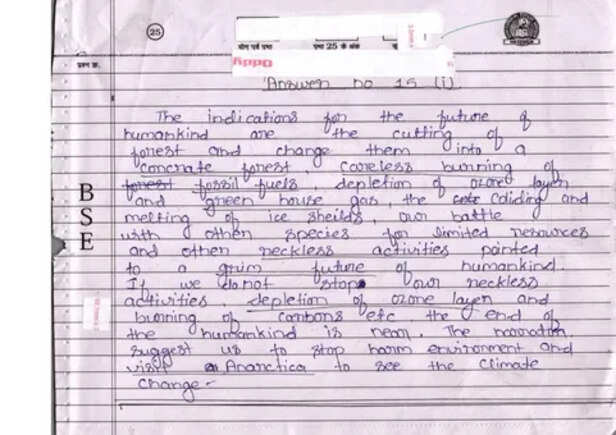 25
पृष्ठ 25 के अंक
प्रश्न क्र.
Answer no 15 (i)
The indications for the future of
humankind are the cutting of
forest and change them into a
concrate forest, careless burning of
forest fossil fuels, depletion of ozone layer
and green house gas, the coliding and
melting of ice sheilds, our battle
with other species for limited resources
and other reckless activities painted
to a grim future of humankind.
If we donot stop our reckless
activities, depletion of ozone layer and
burning of carbons etc, the end of
the humankind is near. The narrator,
suggest us to stop harm environment and
visit Anarctica to see the climate
change -
B
S
E